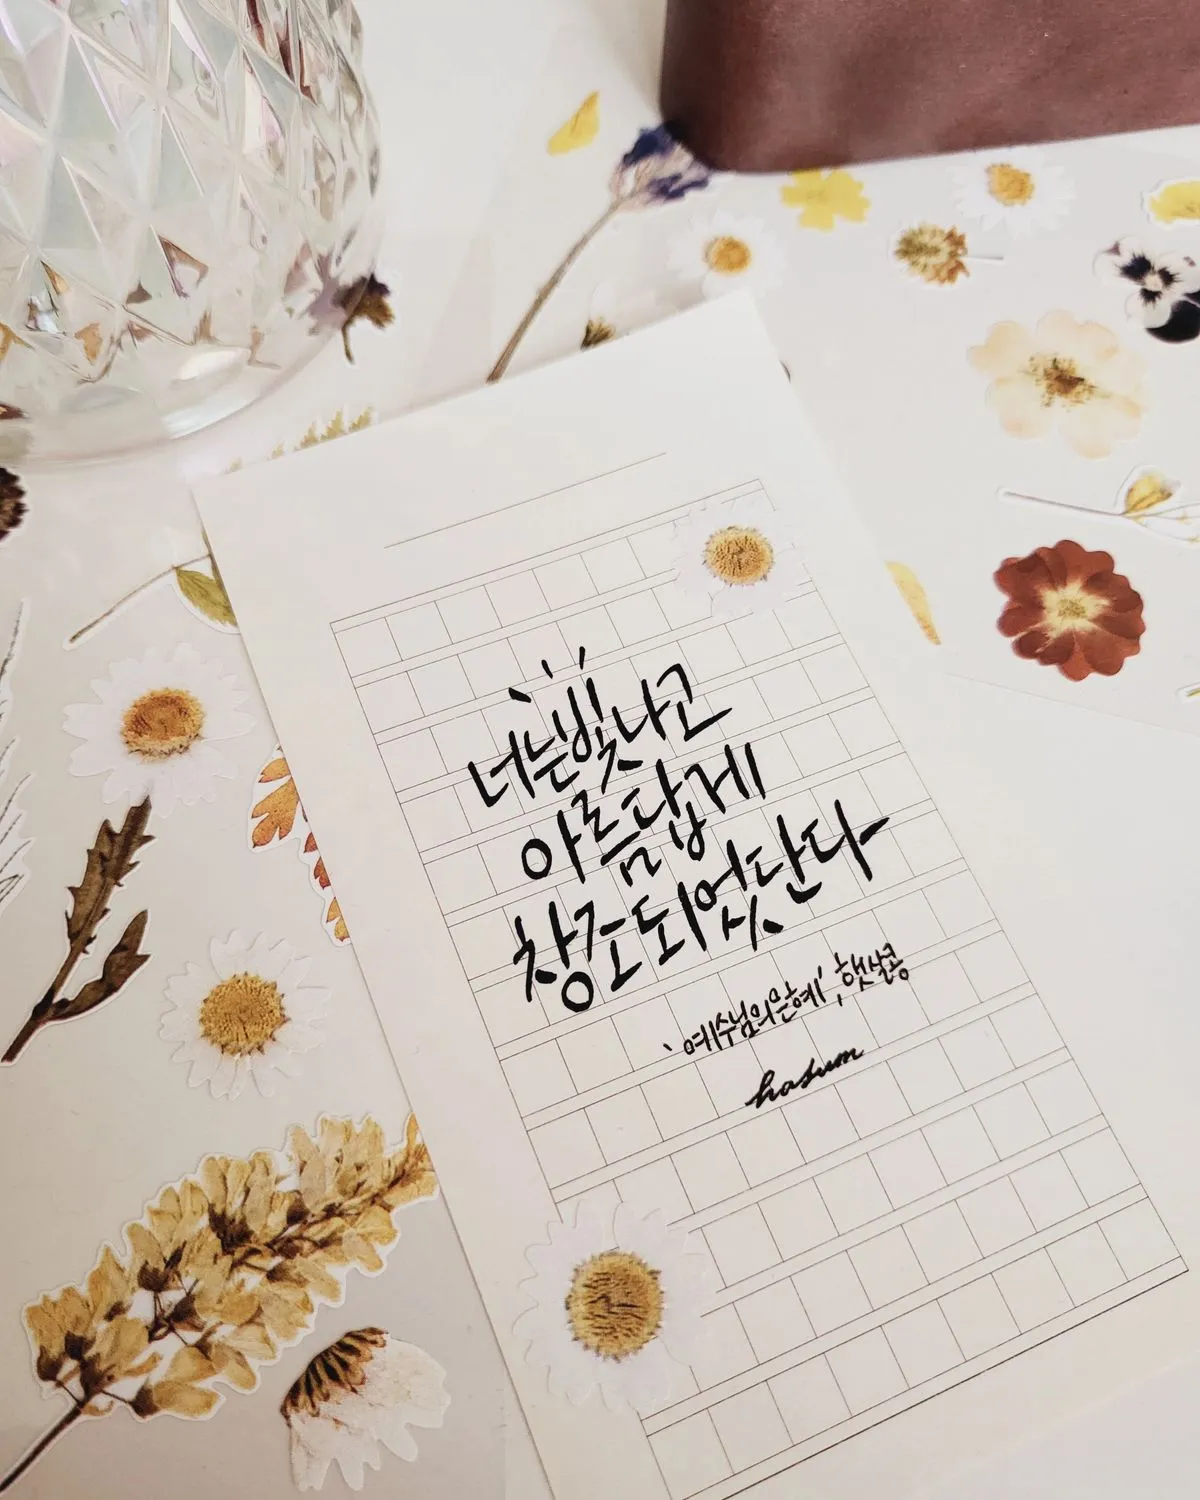 너는 빛나고
아름답게
창조되었단다
'예수님의 은혜', 햇살콩
hasum